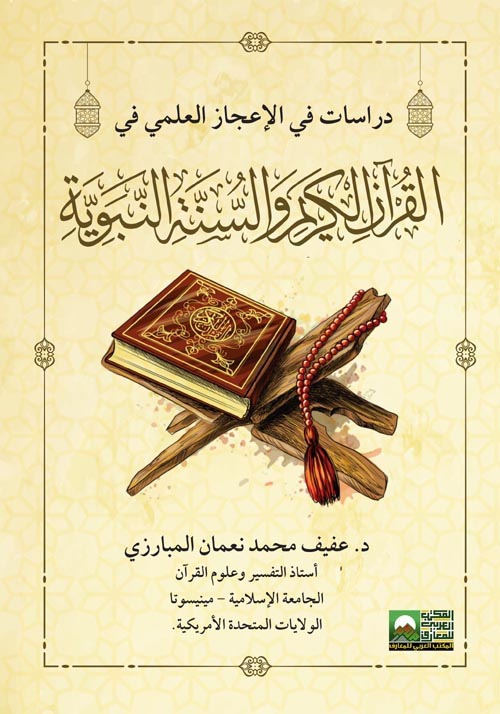 دراسات في الإعجاز العلمي في
القُرآنِ الكَريمِ وَالسُّنَّةِ النَّبَوِيَّةِ
د. عفيف محمد نعمان المبارزي
أستاذ التفسير وعلوم القرآن
الجامعة الإسلامية - مينيسوتا
الولايات المتحدة الأمريكية.
المكتب
العربي
للمعارف
المكتب العربي للمعارف